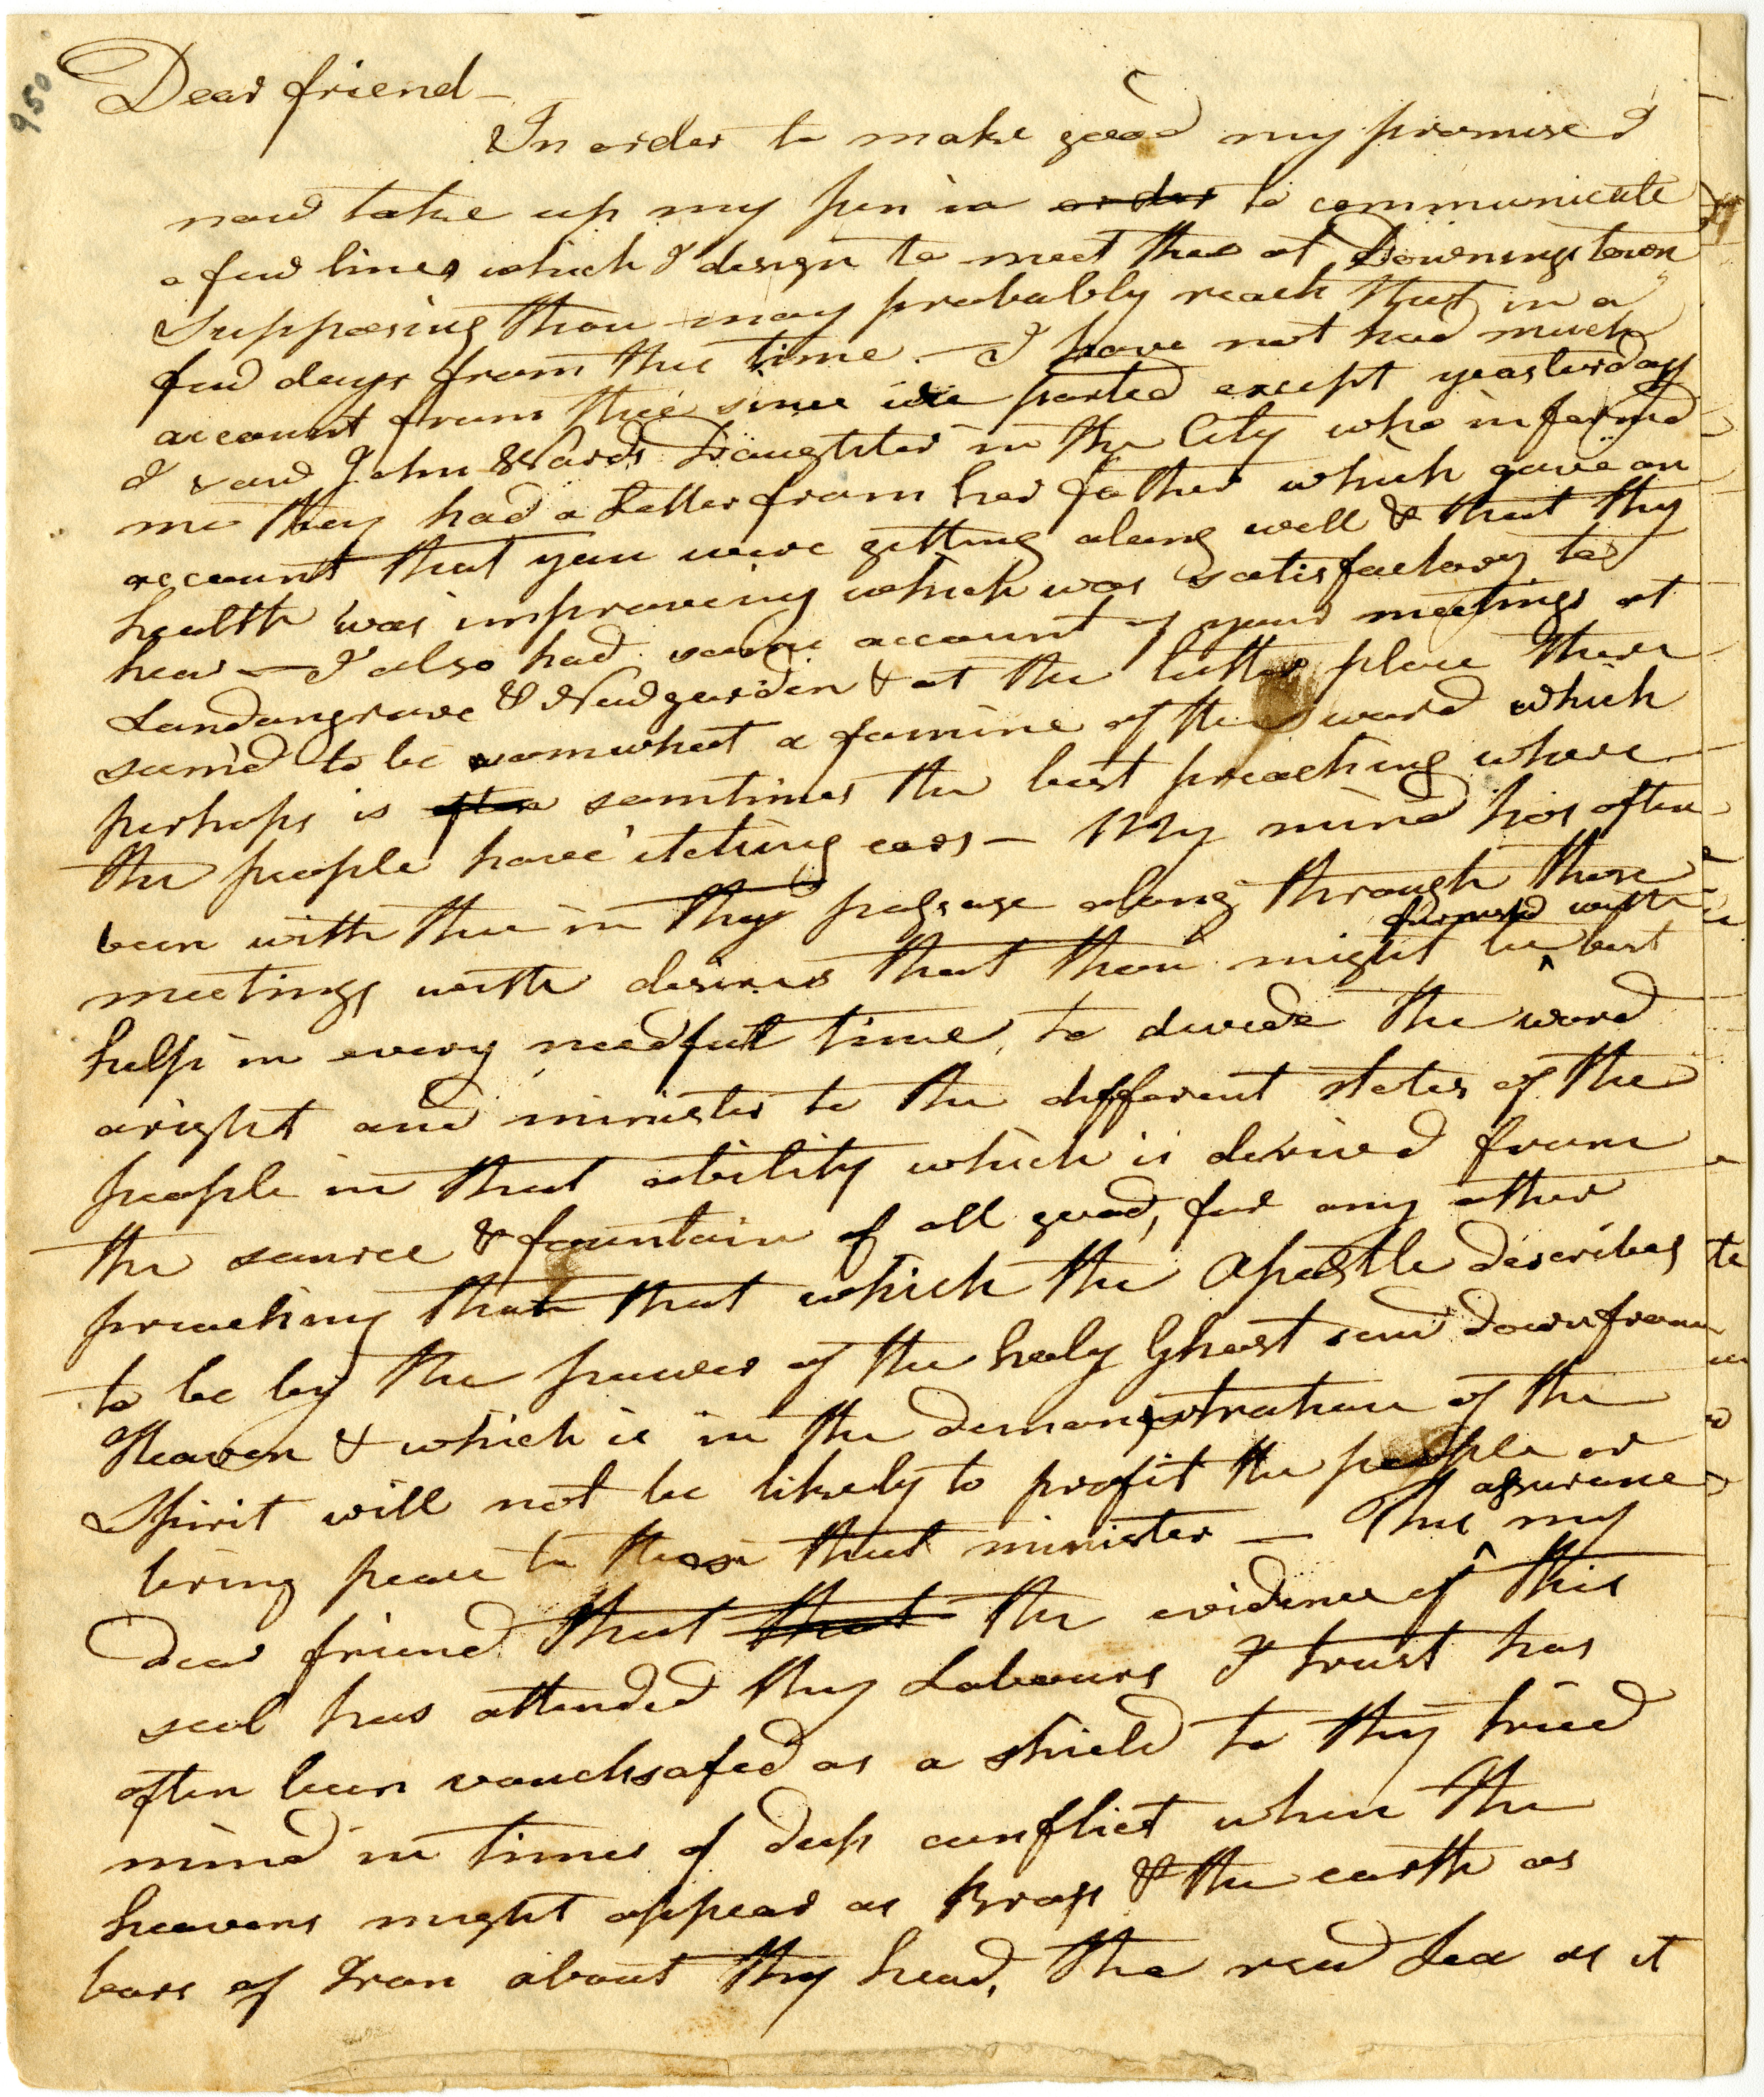 950
Dear friend —
In order to make good my promise I
now take up my pen in order to communicate
a few lines which I design to meet thee at Downingstown
Supposing thou may probably reach that in a
few days from this time. — I have not had much
account from thee since we parted except yeasterday
I saw John Wards Daughter in the City who informd
me they had a Letter from her father which gave an
account that you were getting along well & that thy
health was improveing which was satisfactory to
hear — I also had some account of your meetings at
Londongrove & Newgarden & at the latter place there
seem'd to be somwhat a famine of the word which
perhaps is often somtimes the best preaching where
the people have itching ears — My mind has often
been with thee in thy passage along through those
meetings with desires that thou might be best
furnish'd with
help in every needfull time, to devide the word
aright and minister to the different states of the
people in that ability which is derived from
the source & fountain of all good, for any other
preaching than that which the Apostle describes
to be by the power of the holy Ghost send down from
Heaven & which is in the demonstration of the
Spirit will not be likely to profit the people or
bring peace to those that minister — This my
assurance
dear friend that that the evidence of this
seal has attended thy Labours I trust has
often been vouchsafed as a shield to thy tried
mind in times of deep conflict when the
heavens might appear as Brass & the earth as
bars of Iron about thy head, the read Sea as it